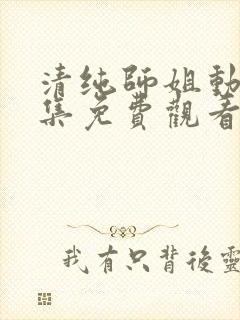 清纯師姐動
集免費觀看
我有只背後靈